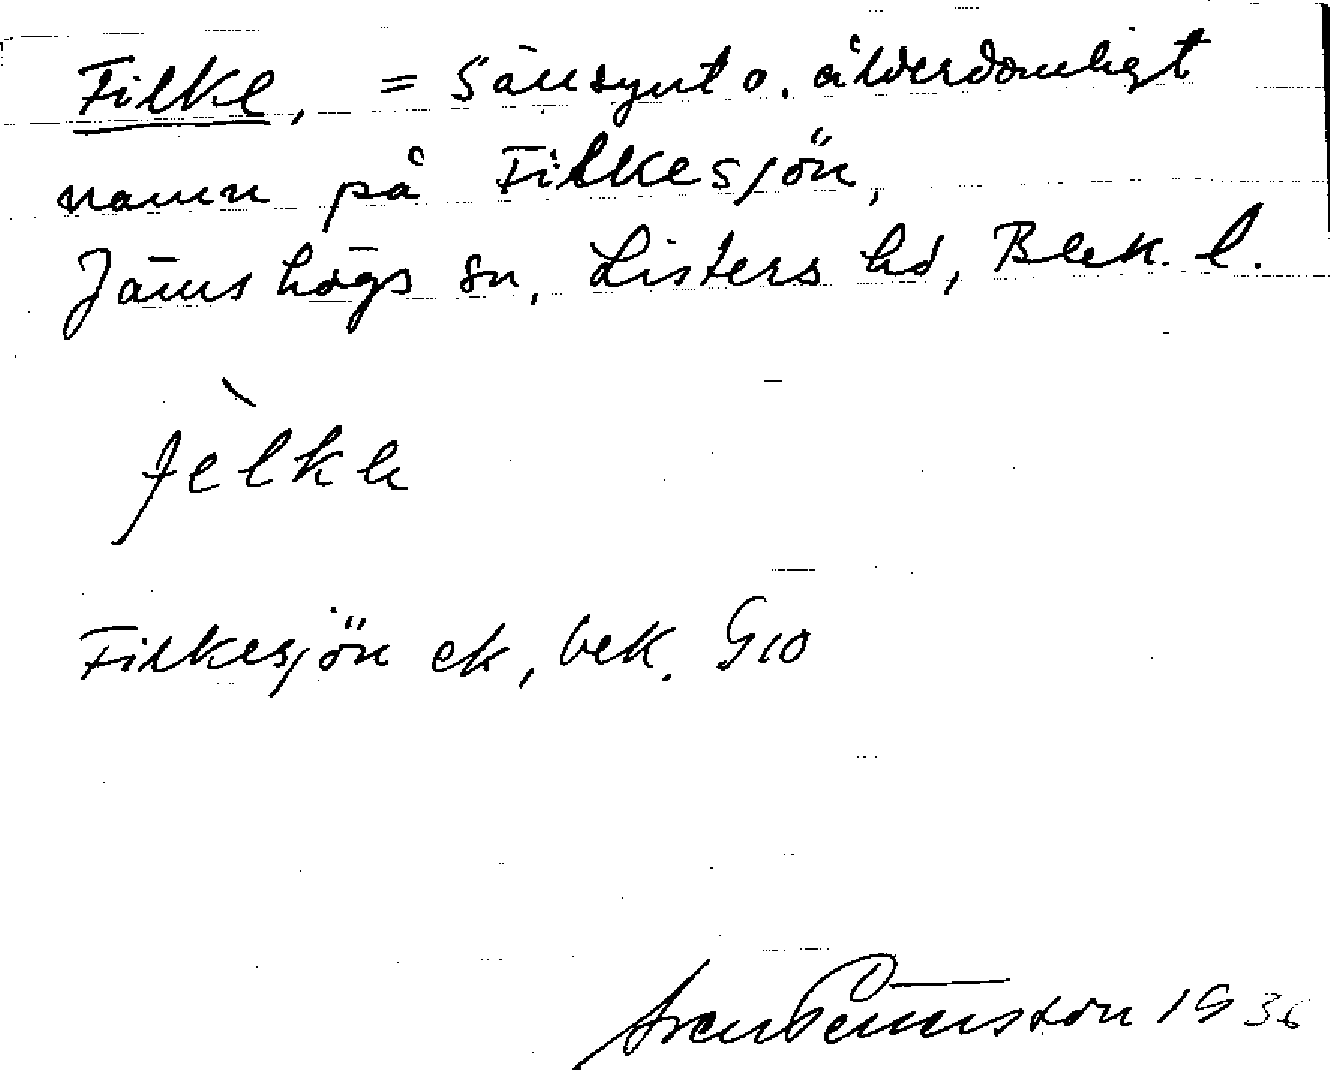 Filke, = Sällsynt o. ålderdomligt
namn på Filkesjön,
Jämshögs sn, Listers hd, Blek. l.
fèlke
Filkesjön ek, bek. G10
Sven Benson 1936